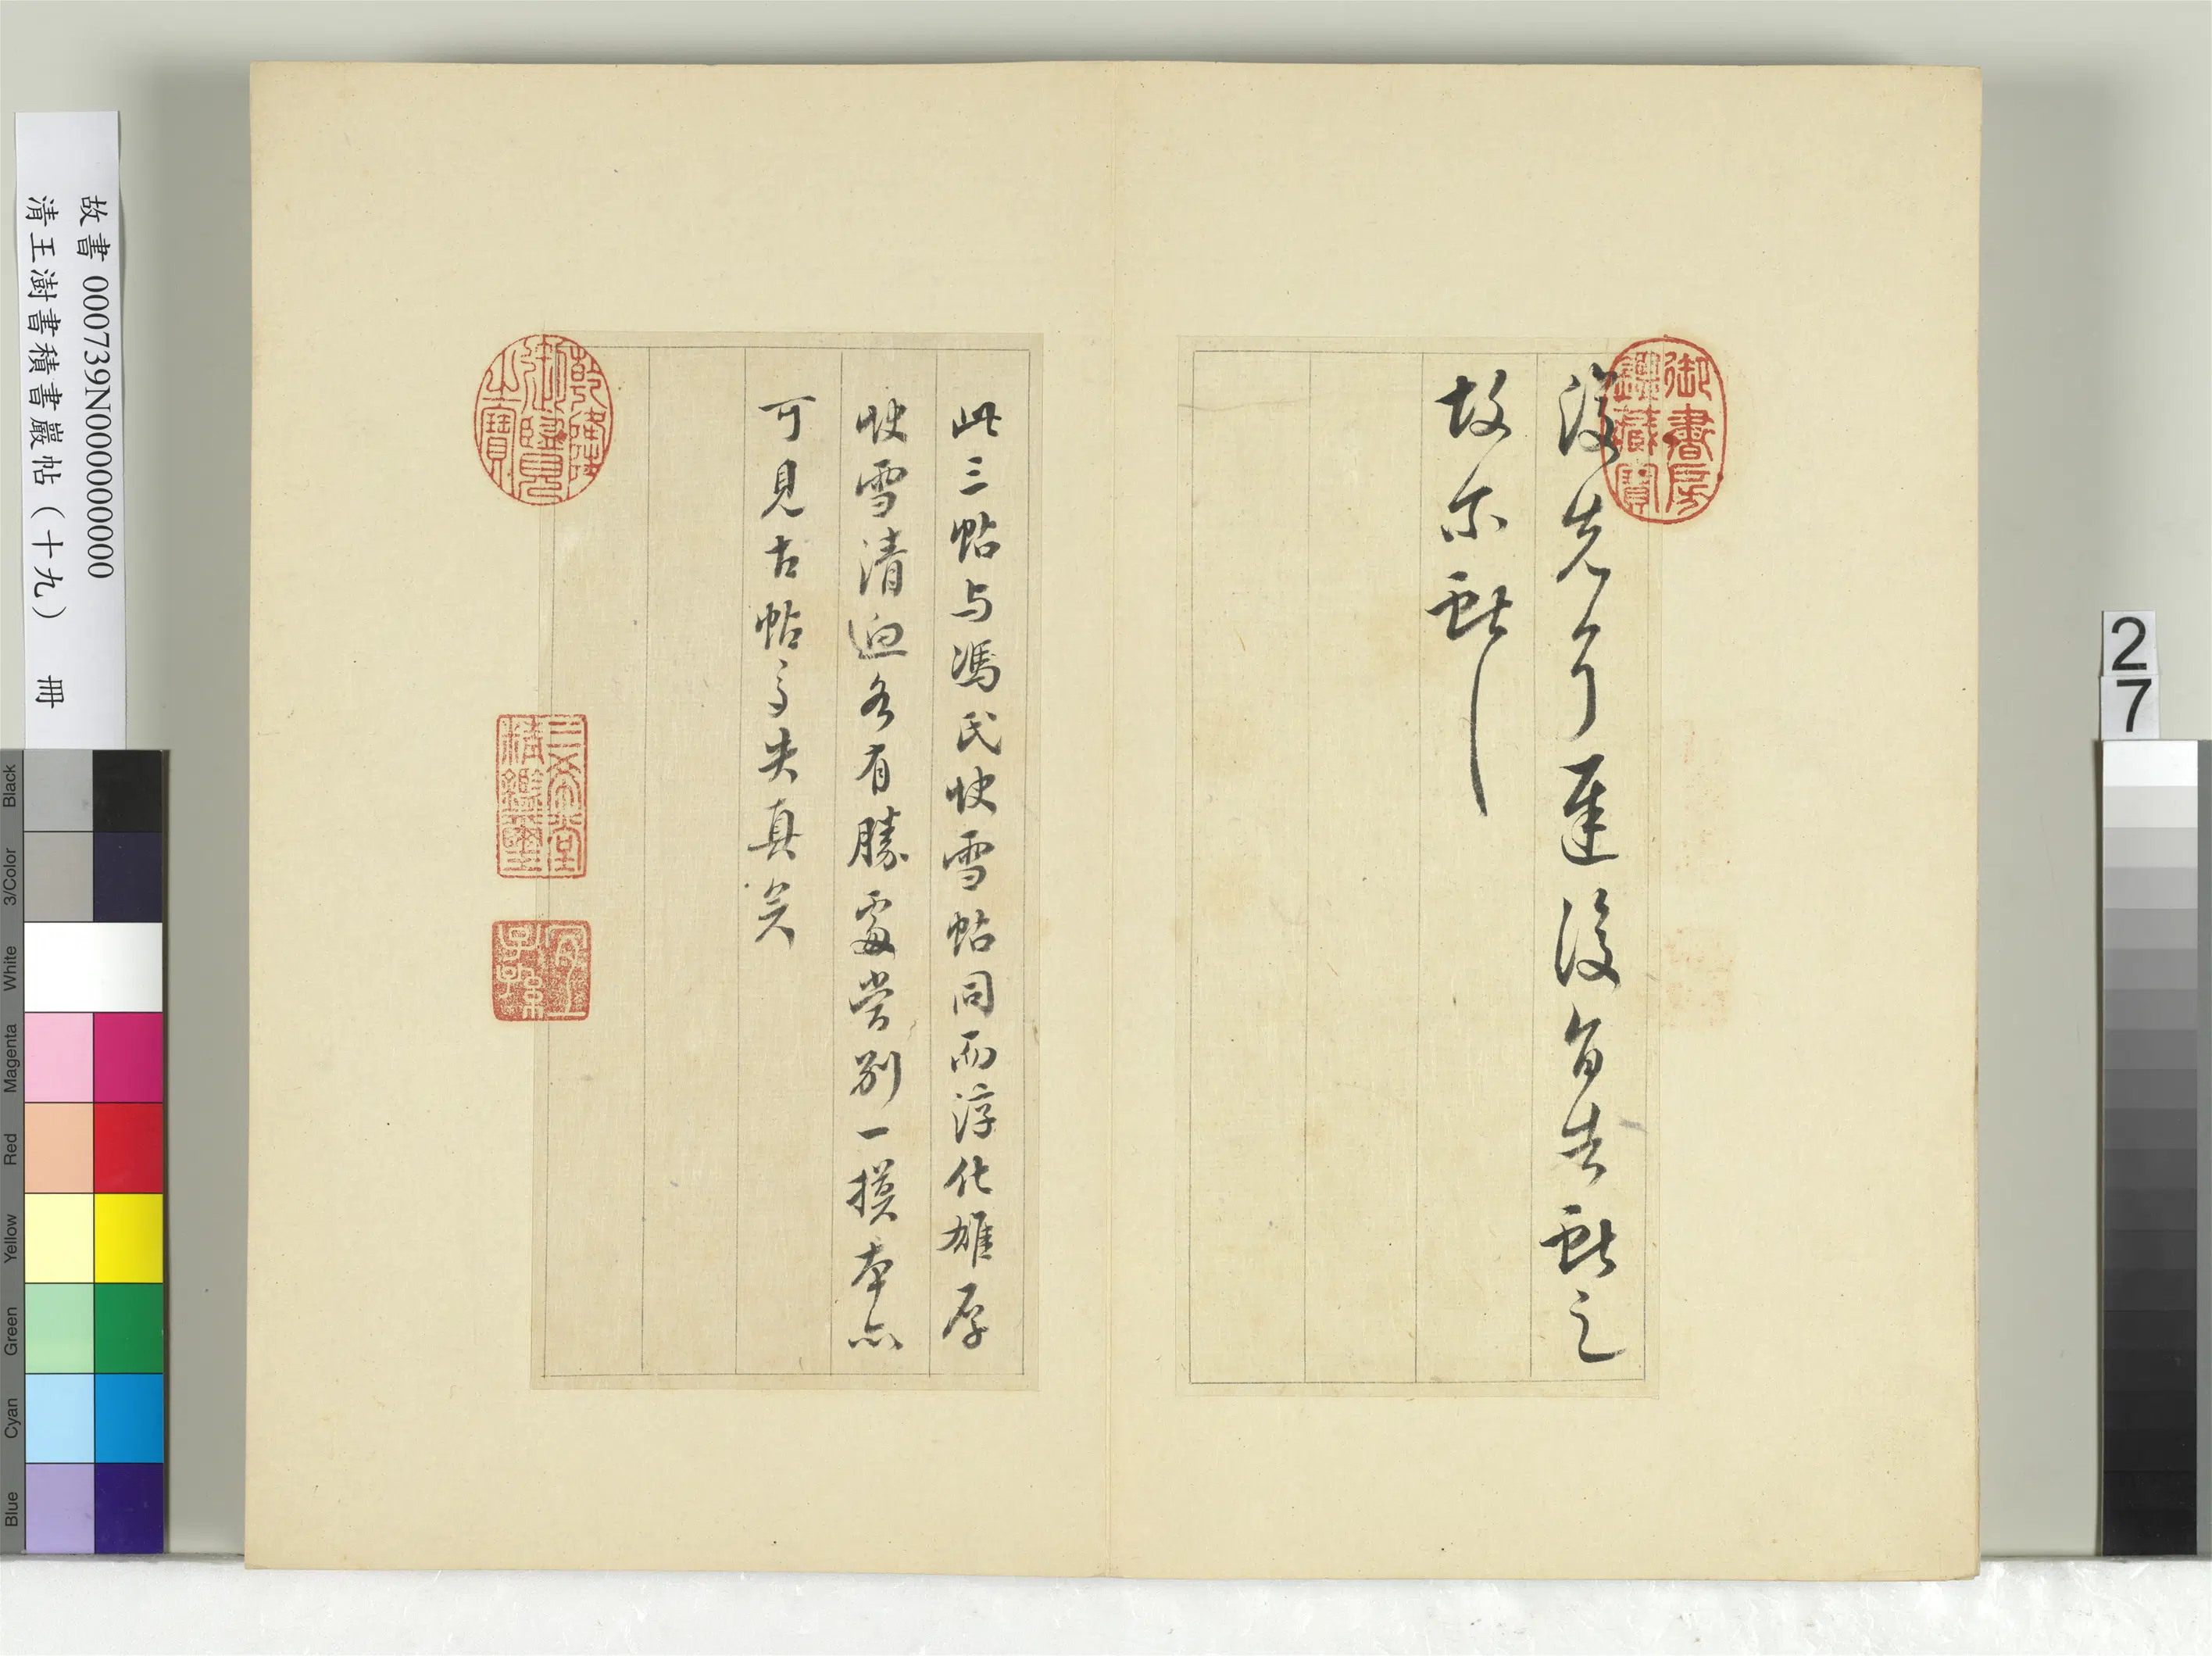 御書房
鑑藏寶
復先行遲復旨告獻之
故尔獻
此三帖与馮氏快雪帖同而淳化雄厚
快雪清迥各有勝處嘗別一摸本亦
可見古帖失真矣
乾隆
御覽
之寶
三希堂
精鑑璽
宜
子孫
故書 000739N000000000
清王澍書積書巖帖（十九） 冊
27
Black
3/Color
White
Magenta
Red
Yellow
Green
Cyan
Blue